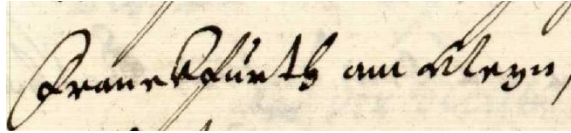 Franckfürth am Meyn,